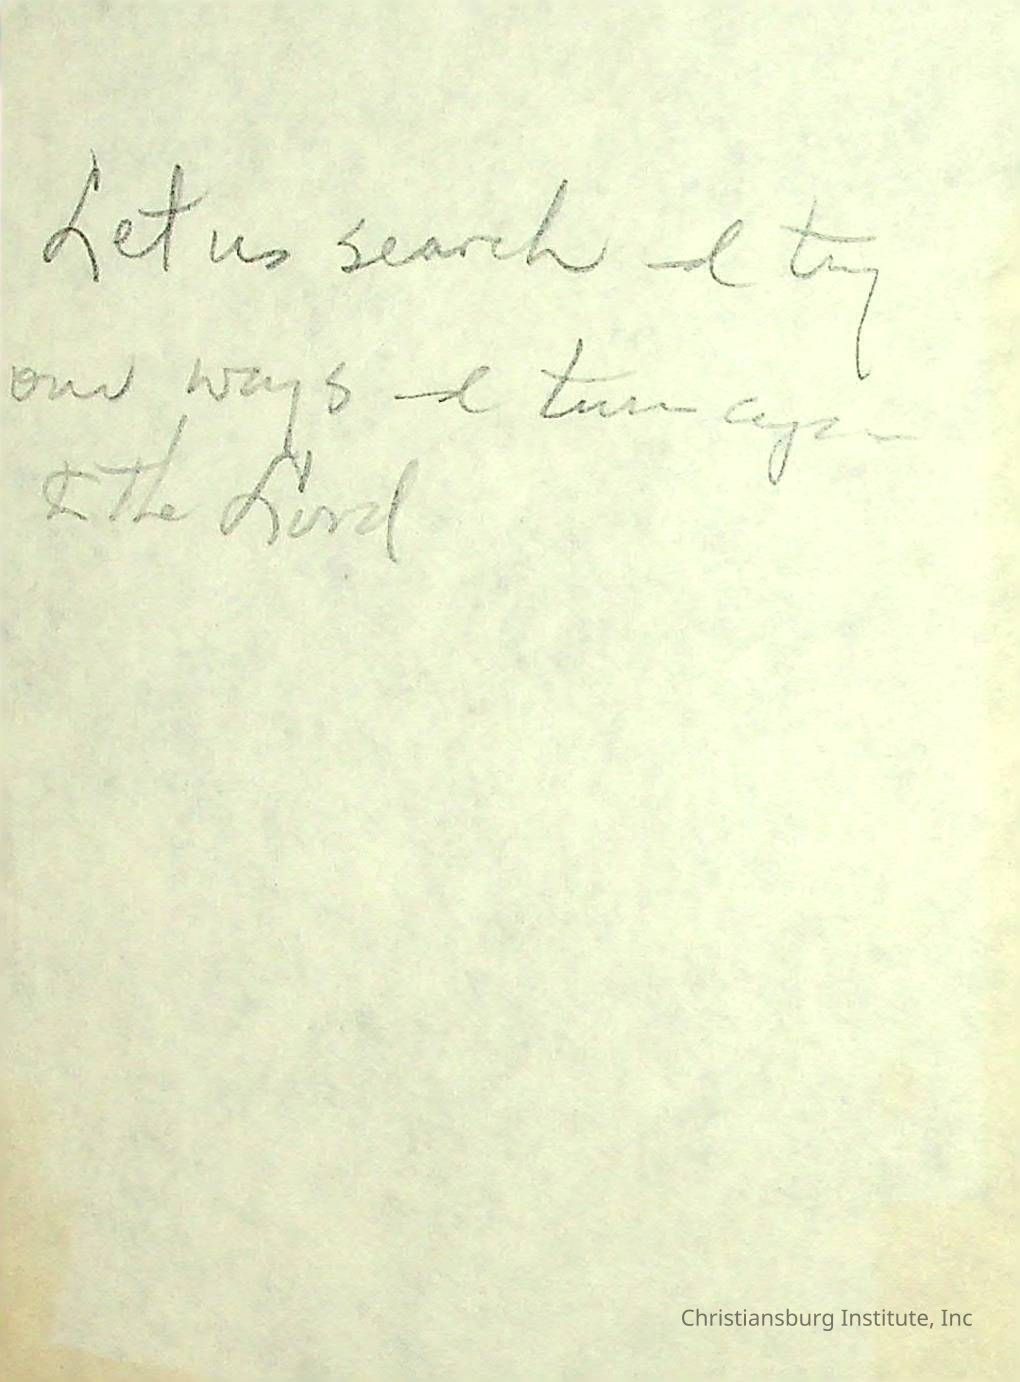 Let us search & try
our ways & turn again
to the Lord
Christiansburg Institute, Inc